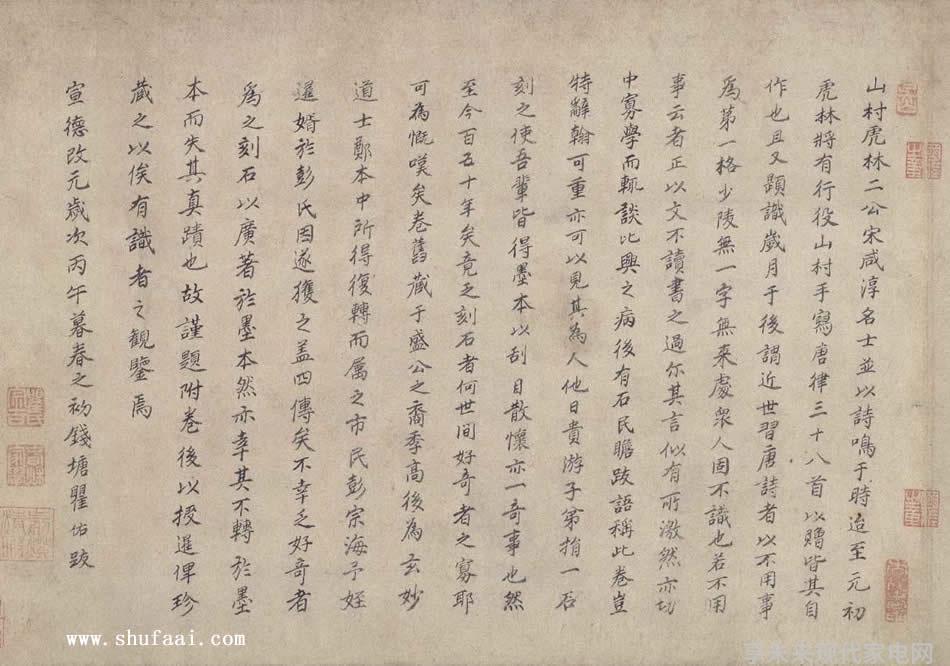 山村虎林二公宋咸淳名士並以詩鳴于時迨至元初
虎林將有行役山村手寫唐律三十八首以贈皆其自
作也且又題識歲月于後謂近世習唐詩者以不用事
為第一格少陵無一字無来處衆人固不識也若不用
事云者正以文不讀書之過尔其言似有所激然亦切
中寡學而輒談比興之病後有石民瞻跋語稱此卷豈
特辭翰可重亦可以見其為人他日貴游子弟捐一石
刻之使吾輩皆得墨本以刮目散懷亦一奇事也然
至今百五十年矣竟乏刻石者何世間好奇者之寡耶
可為慨嘆矣卷舊藏于盛公之裔季高後為玄妙
道士鄭本中所得復轉而属之市民彭宗海予姪
暹婿於彭氏因遂獲之盖四傳矣不幸乏好奇者
為之刻石以廣著於墨本然亦幸其不轉於墨
本而失其真蹟也故謹題附卷後以授暹俾珍
藏之以俟有識者之觀鑒焉
宣德改元歲次丙午暮春之初錢塘瞿佑跋
www.shufaai.com